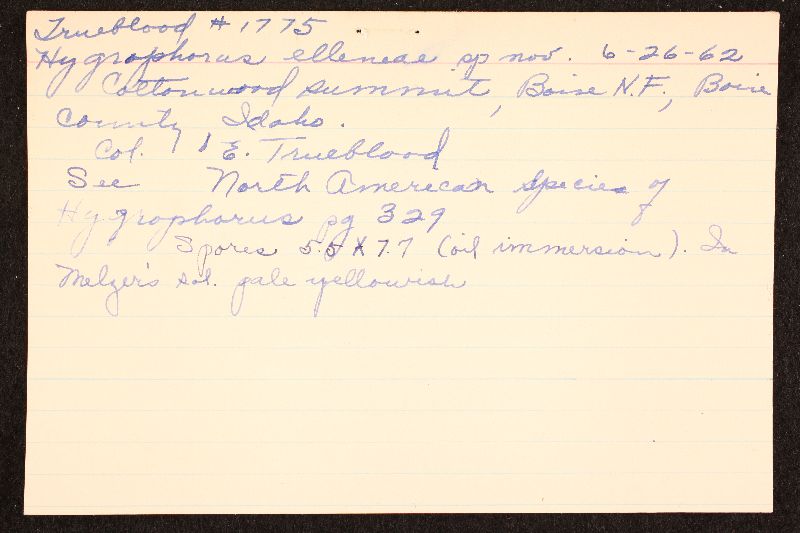 Trueblood # 1775
Hygrophorus elleneae sp nov. 6-26-62
Cottonwood summit, Boise N.F., Boise
County, Idaho.
Col. E. Trueblood
See North American Species of
Hygrophorus pg 329
Spores 5.5 X 7.7 (oil immersion). In
Melzer's sol. pale yellowish